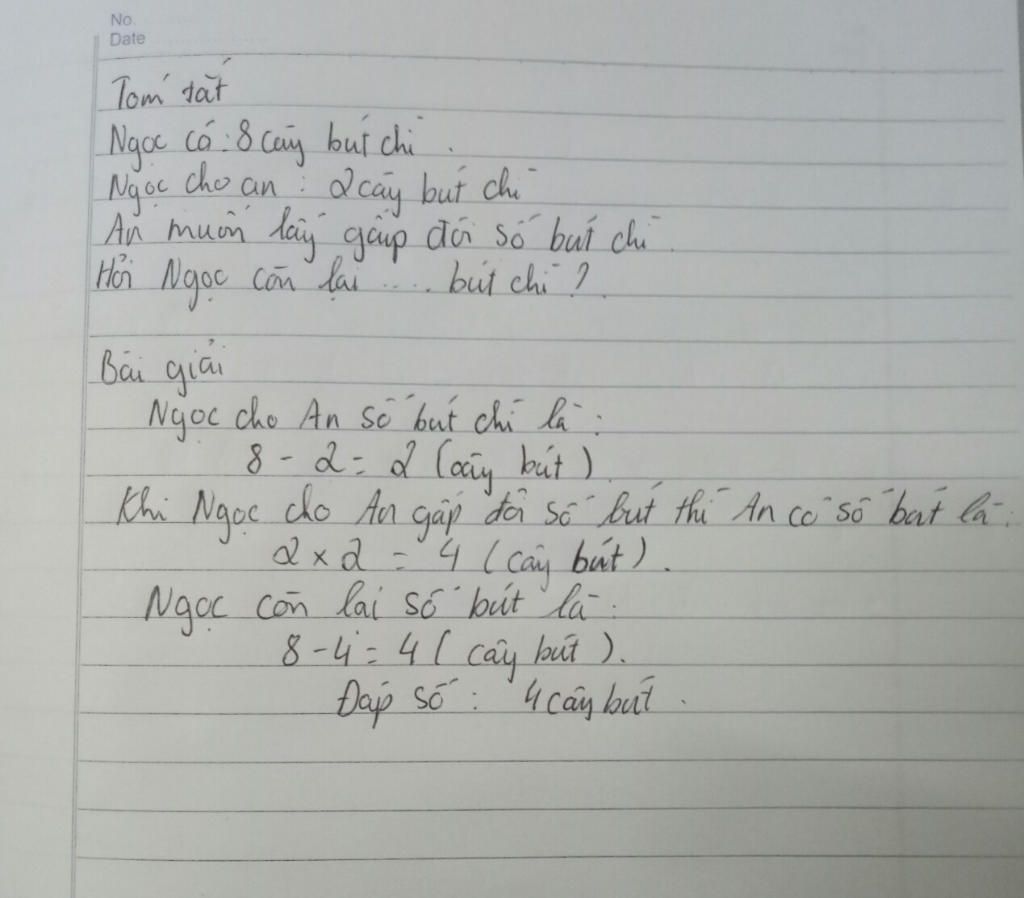 No.
Date
Tóm tắt
Ngọc có: 8 cây bút chì.
Ngọc cho an: 2 cây bút chì
An muốn lấy gấp đôi số bút chì.
Hỏi Ngọc còn lại .... bút chì?
Bài giải
Ngọc cho An số bút chì là:
8 - 2 = 2 (cây bút).
Khi Ngọc cho An gấp đôi số bút thì An có số bút là:
2 x 2 = 4 (cây bút).
Ngọc còn lại số bút là:
8 - 4 = 4 (cây bút).
Đáp số: 4 cây bút.